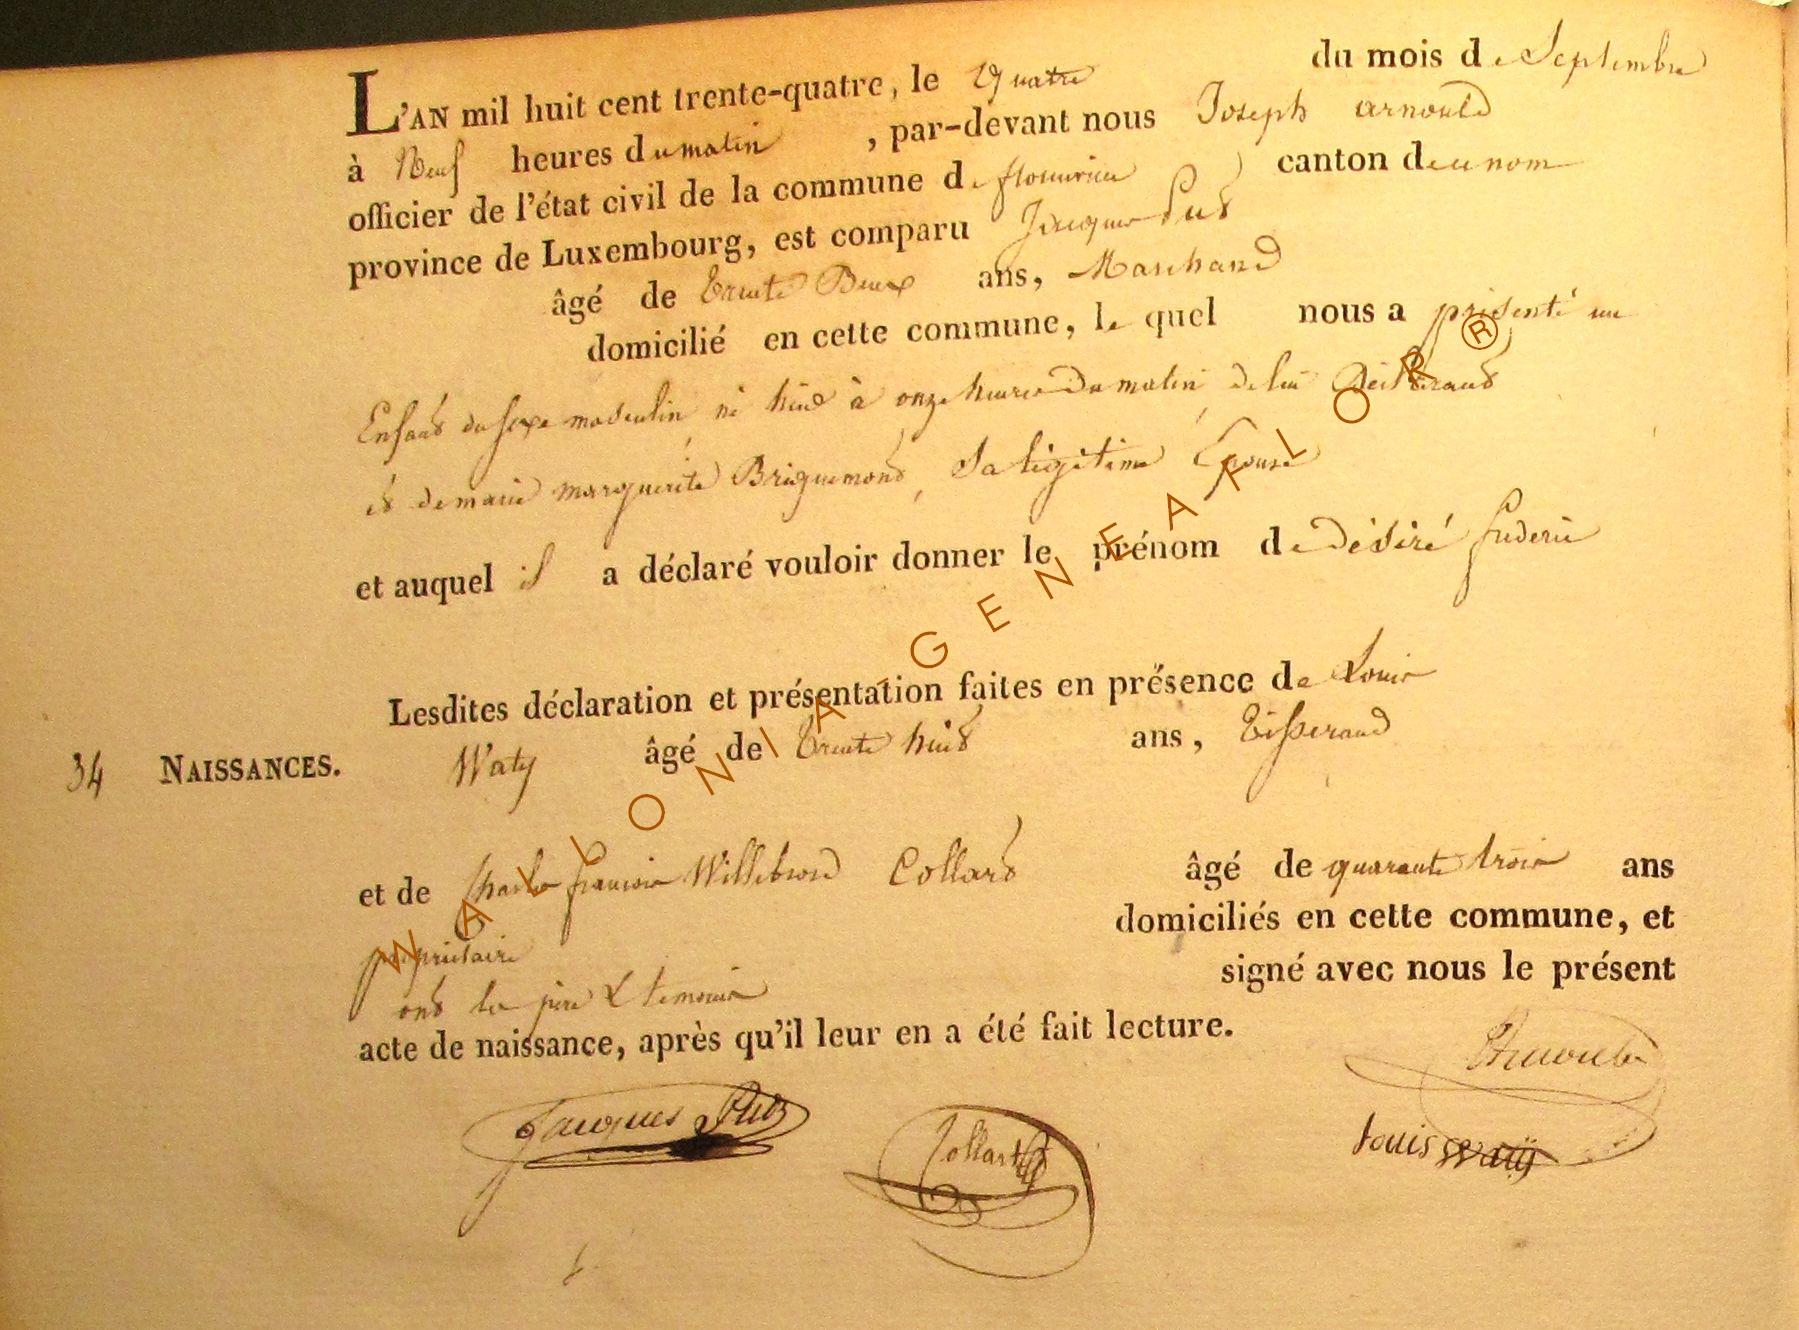 L'AN mil huit cent trente-quatre, le quatre du mois de Septembre
à Neuf heures du matin, par-devant nous Joseph arnould
officier de l'état civil de la commune de canton du nom
province de Luxembourg, est comparu Jacques
âgé de trente Deux ans, Marchand
domicilié en cette commune, le quel nous a présenté un
Enfant du sexe masculin né hier à onze heures du matin de lui Déclarant
et de marie marguerite Briquemont, Sa légitime Epouse
et auquel il a déclaré vouloir donner le prénom de Désiré frederic
Lesdites déclaration et présentation faites en présence de Louis
34 NAISSANCES. Waty âgé de trente huit ans, tisserand
et de Charles francois Willibrord Collard âgé de quarante trois ans
domiciliés en cette commune, et
propriétaire
signé avec nous le présent
ont les père & temoins
acte de naissance, après qu'il leur en a été fait lecture.
Arnould
Jacques
Collart
Louis Waty
WALLONIA - GENEAFLOR ®